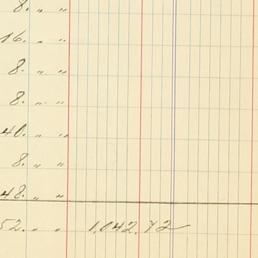 8. " "
16. " "
8. " "
8. " "
40. " "
8. " "
48. " "
52. " " 1,042.72